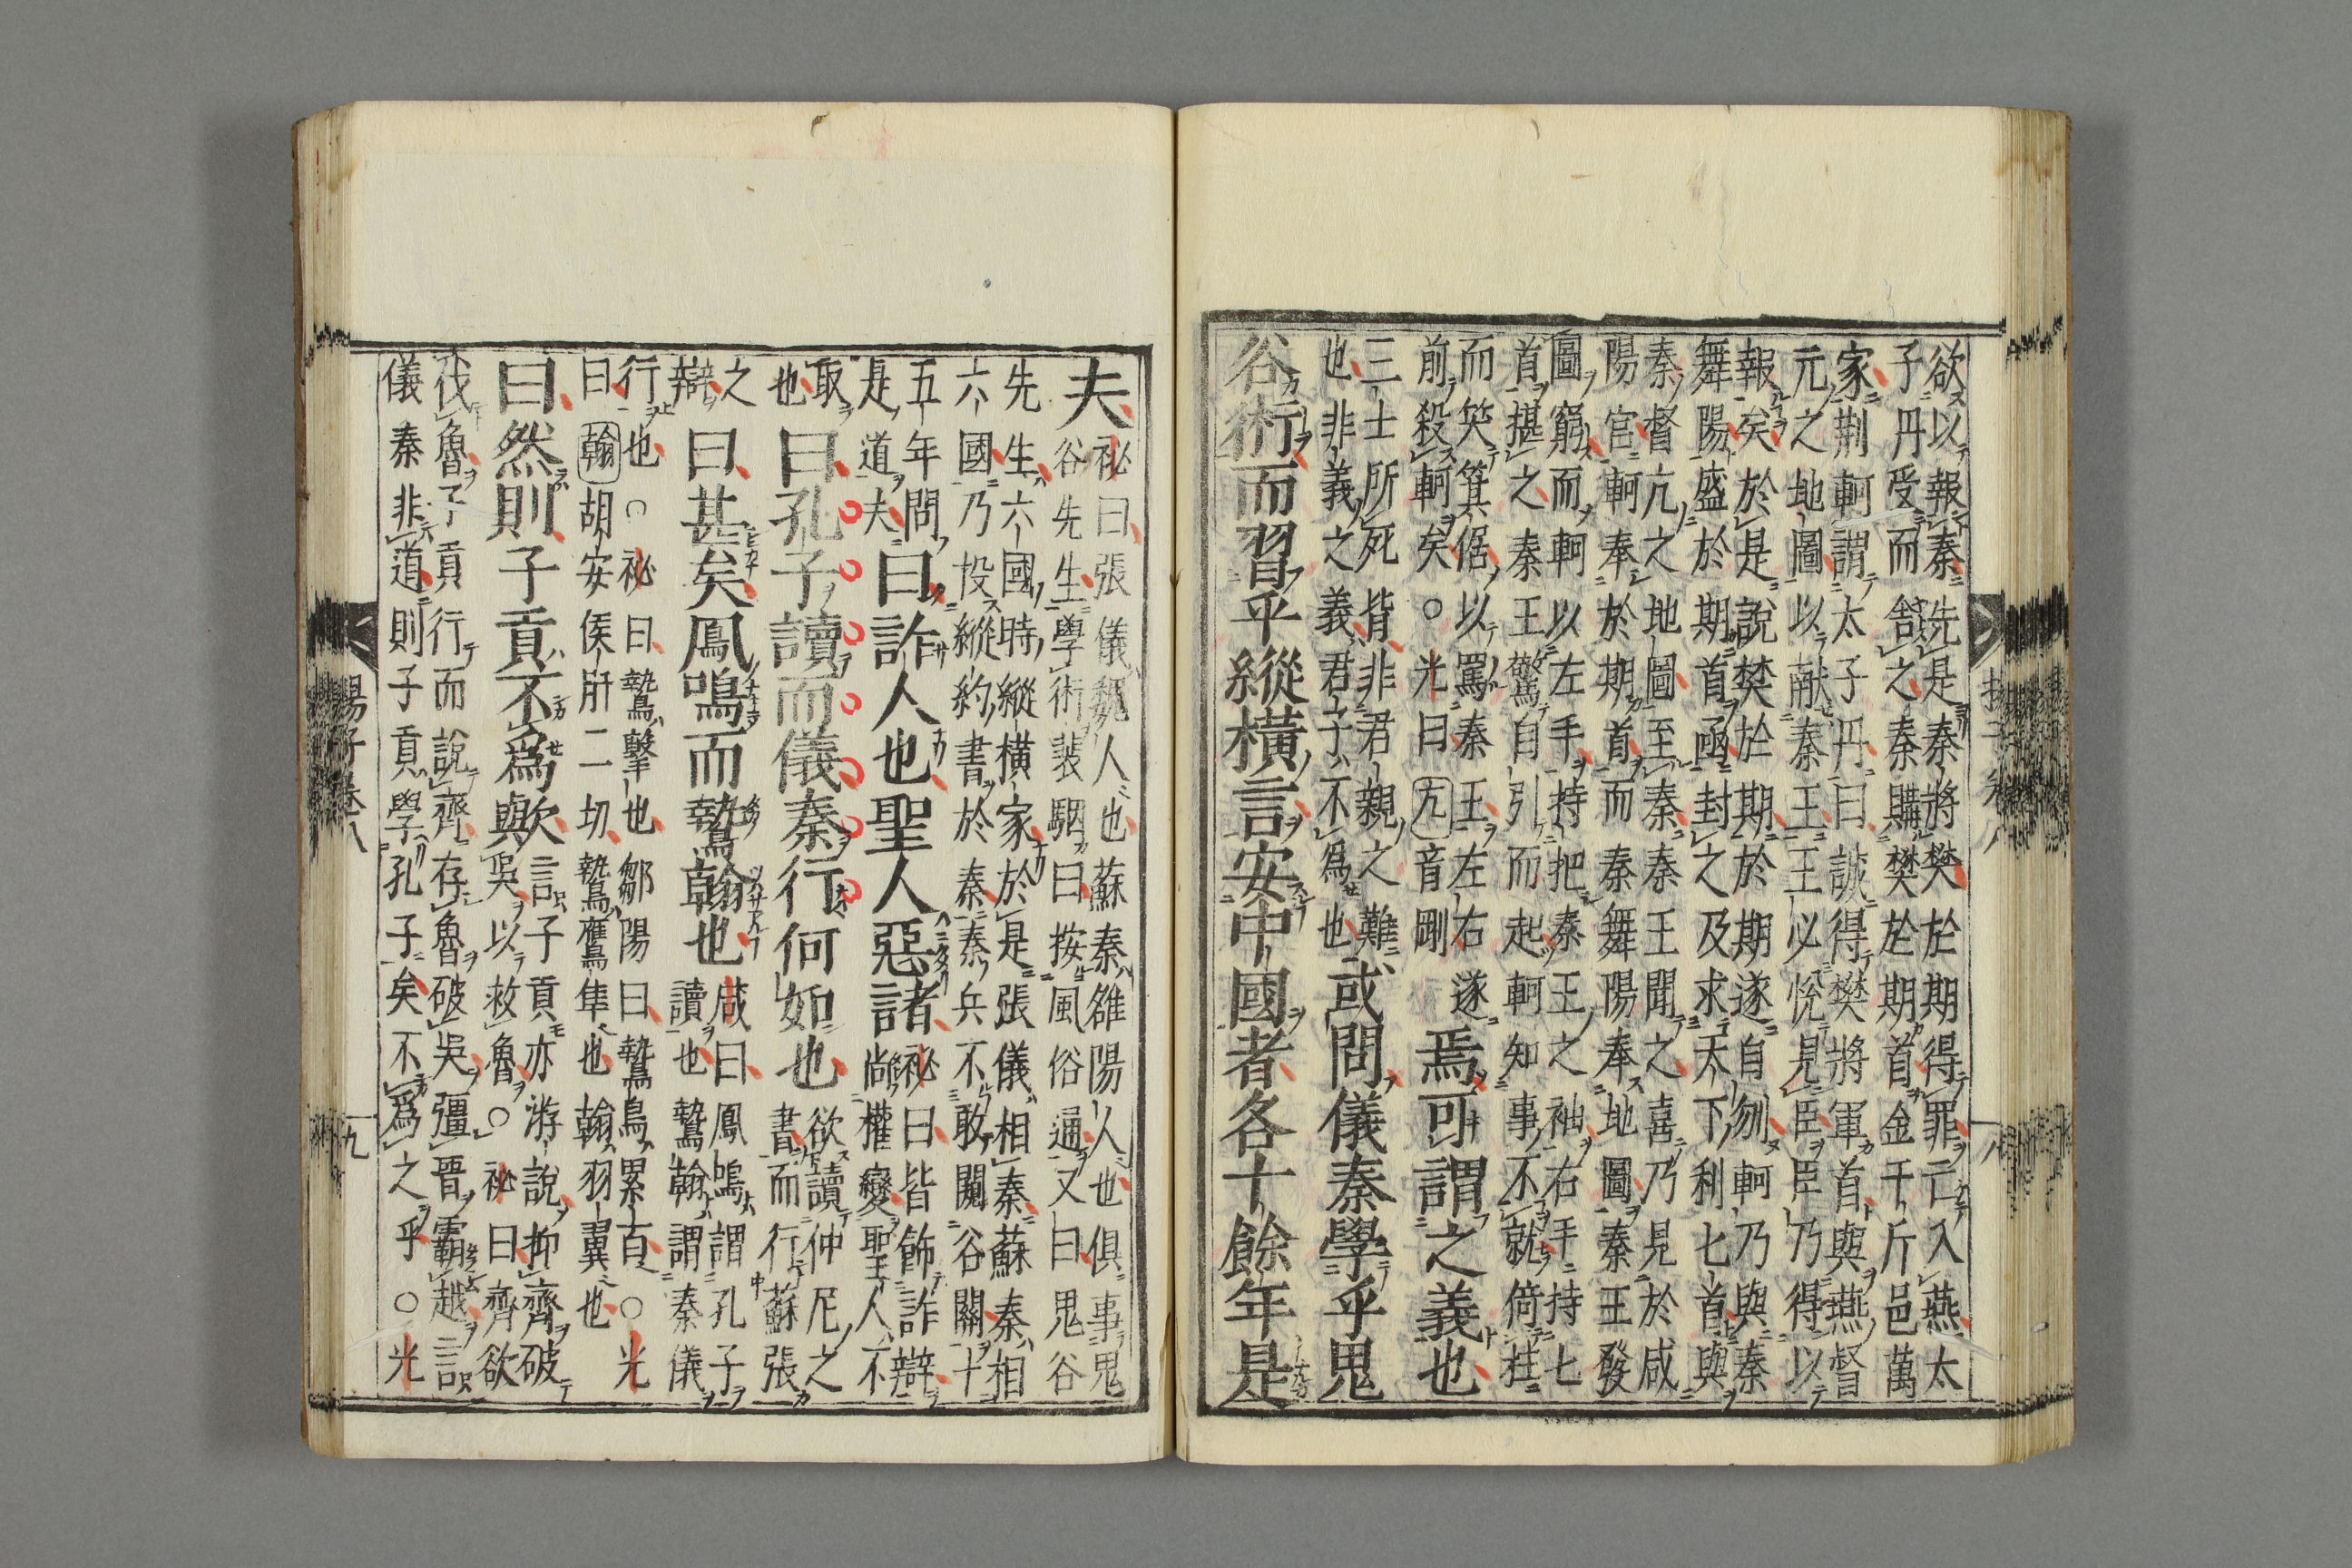 欲以報秦先是秦將樊於期得罪亡入燕太
子丹受而舎之秦購樊於期首金千斤邑萬
家荆軻謂太子丹曰誠得樊將軍首與燕督
元之地圖以献秦王王必悅見臣臣乃得以
報矣於是說樊於期於期遂自刎軻乃與秦
舞陽盛於期首函封之及求天下利七首與
秦督亢之地圖至秦秦王聞之喜乃見於咸
陽宫軻奉於期首而秦舞陽奉地圖秦王發
圖窮而軻以左手持把秦王之袖右手持七
首揕之秦王驚自引而起軻知事不就倚柱
而笑箕倨以罵秦王左右遂
前殺軻矣○光曰亢音剛
焉可謂之義也
三士所死皆非君親之難
也非義之義君子不爲也
或問儀秦學乎鬼
谷術而習乎縱橫言安中國者各十餘年是
揚子卷八
八
夫
祕曰張儀魏人也蘇秦雒陽人也俱事鬼
谷先生學術裴駰曰按風俗通又曰鬼谷
先生六國時縱橫家於是張儀相秦蘇秦相
六國乃投縱約書於秦秦兵不敢闚谷關十
五年問
是道夫
曰詐人也聖人惡諸
祕曰皆飾詐辯
尚權變聖人不
取
也
曰孔子讀而儀秦行何如也
欲讀仲尼之
書而行蘇張
之
辯
曰甚矣鳳鳴而鷙翰也
咸曰鳳鳴謂孔子
讀也鷙翰謂秦儀
行也○祕曰鷙擊也鄒陽曰鷙鳥累百○光
曰翰胡安侯肝二切鷙鷹隼也翰羽翼也
曰然則子貢不爲歟
言子貢亦游說抑齊破
吳以救魯○祕曰齊欲
伐魯子貢行而說齊存魯破吳彊晉霸越言
儀秦非道則子貢學孔子矣不爲之乎○光
揚子卷八
九